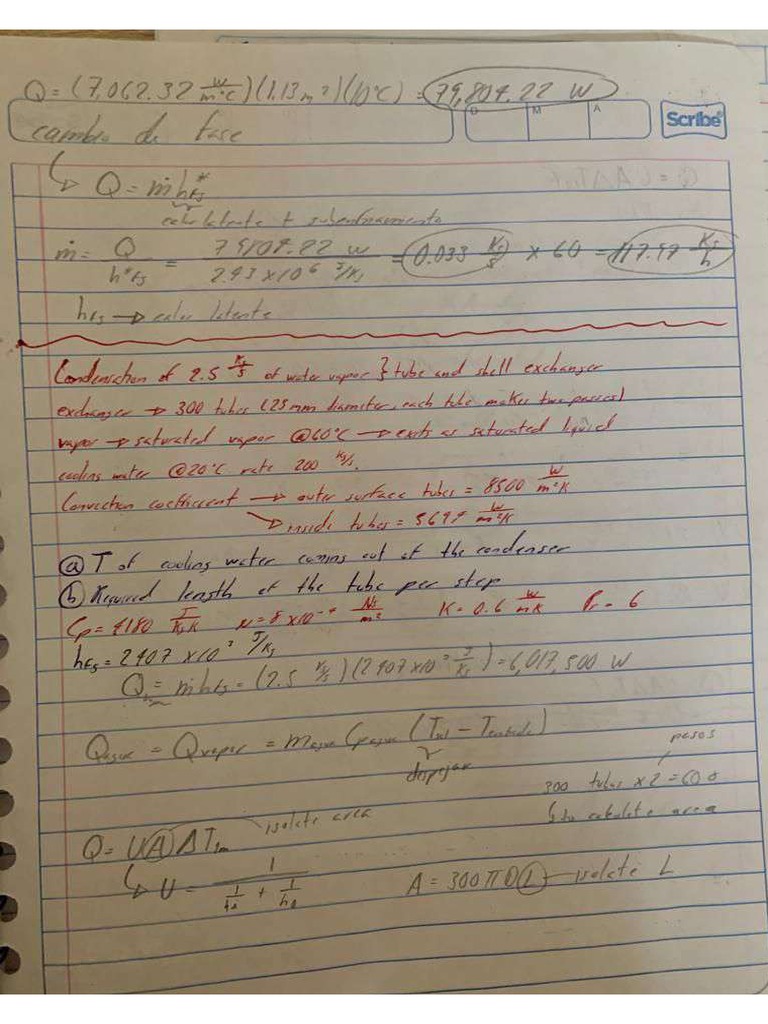 Q = (7,062.32 W/m²°C)(1.13m²)(10°C) = 79,804.22 W
D M A
Scribe®
cambio de fase
↳ Q = ṁh*fg
calor latente + subenfriamiento
ṁ = Q/h*fg = 79804.22 W / 2.43x10⁶ J/Kg = 0.033 Kg/s x 60 = 117.97 Kg/h
hfg → calor latente
Condensation of 2.5 Kg/s of water vapor } tube and shell exchanger
exchanger → 300 tubes (25mm diameter, each tube makes two passes)
vapor → saturated vapor @60°C → exits as saturated liquid
cooling water @20°C rate 200 Kg/s.
Convection coefficient → outer surface tubes = 8500 W/m²K
↘ inside tubes = 5697 W/m²K
(a) T of cooling water coming out of the condenser
(b) Required length of the tube per step
Cp = 4180 J/KgK N = 8x10⁻⁴ Ns/m² K = 0.6 W/mK Pr = 6
hfg = 2407 x10³ J/Kg
Q = ṁhfg = (2.5 Kg/s)(2407x10³ J/Kg) = 6,017,500 W
Qagua = Qvapor = magua Cpagua (Tsal - Tentrada)
despejar
pasos
300 tubes x 2 = 600
↳ to calculate area
Q = UAΔTlm isolate area
↳ U = 1 / (1/hi + 1/ho) A = 300πDL — isolate L